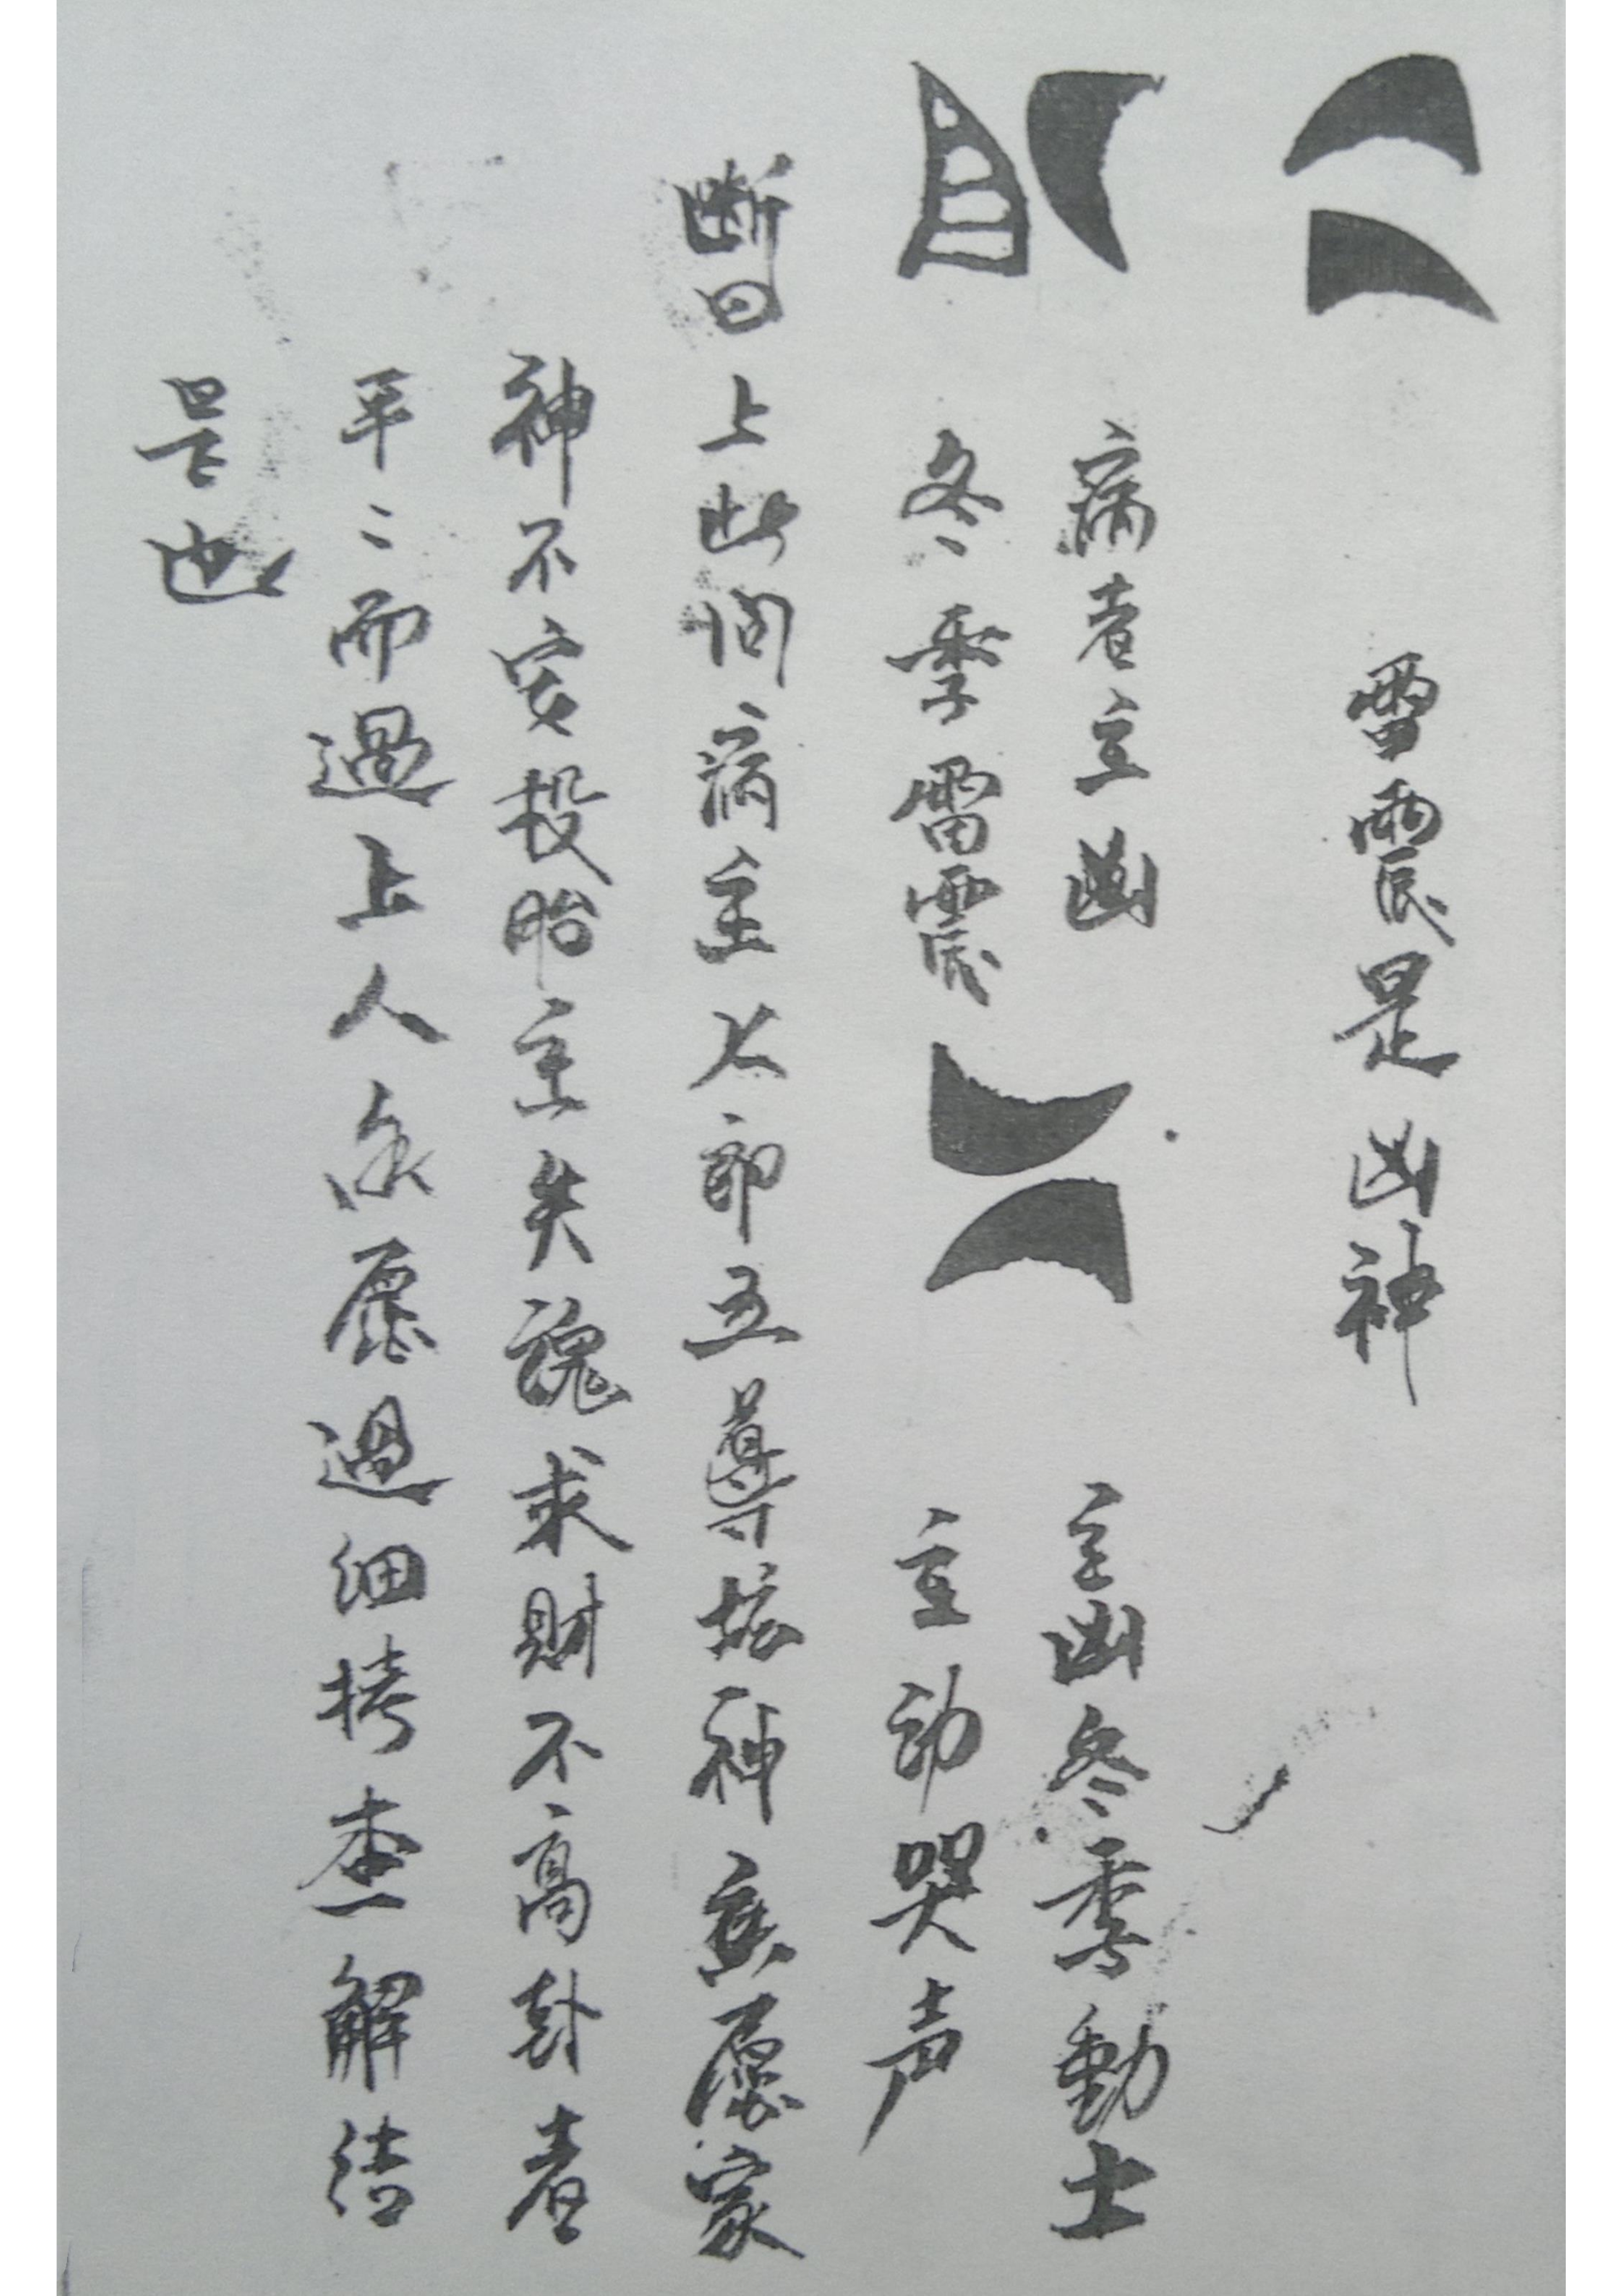 雷震是凶神
病者主凶
冬季雷震
主凶冬季動土
主动哭声
断曰上此问病主大郎五尊坛神旧愿家
神不安投胎主失魂求财不高卦者
平二而過上人永愿過细拷查解结
是也